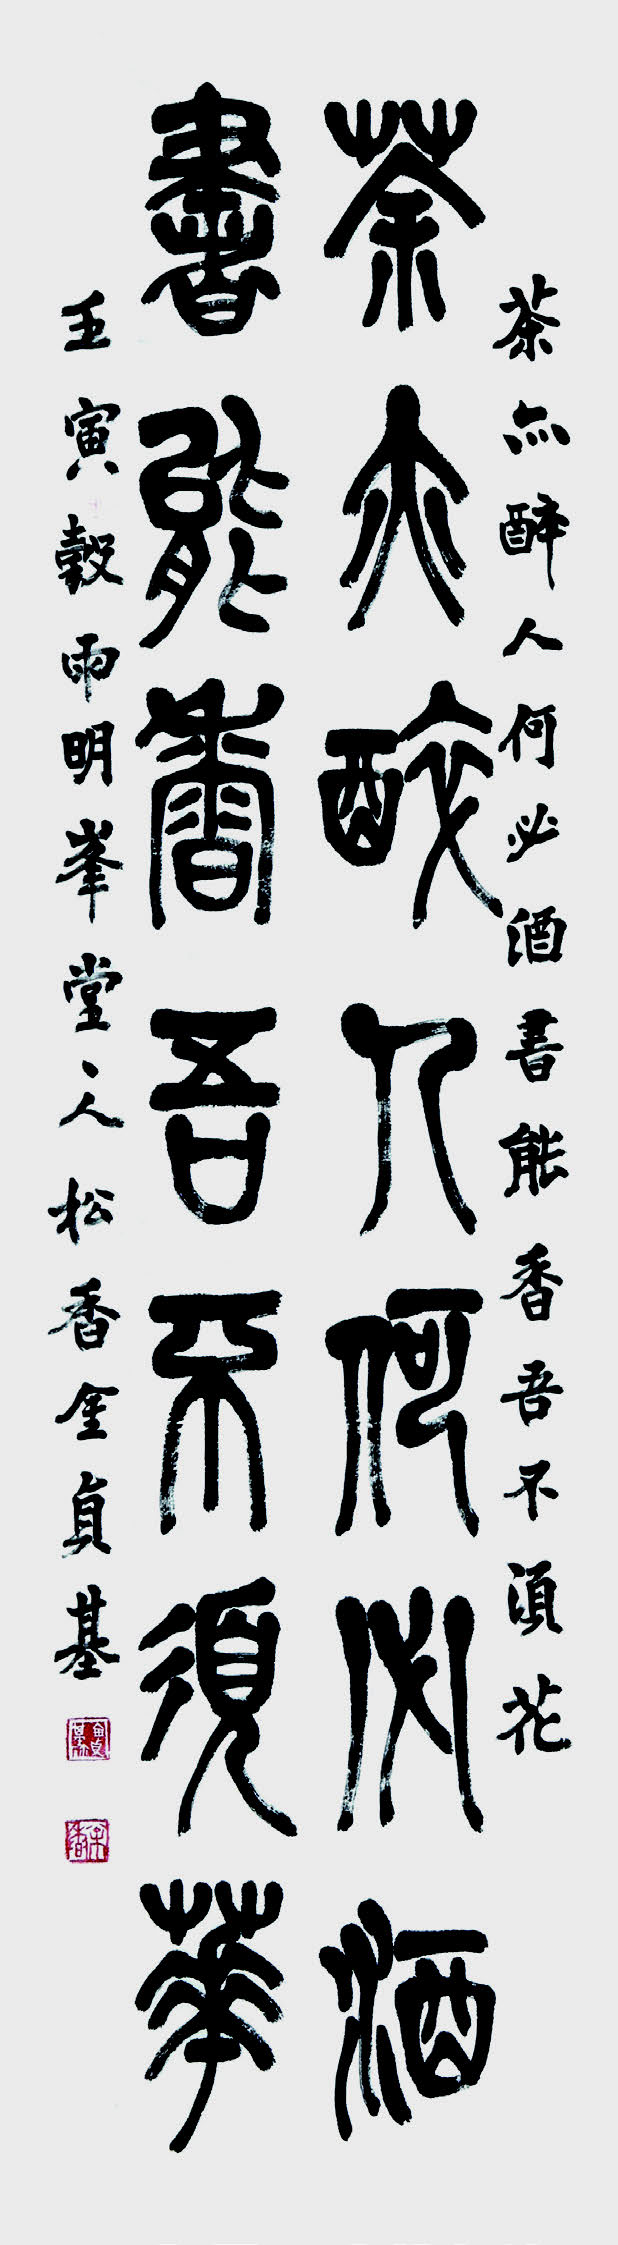 茶亦醉人何必酒書能香吾不須花
茶亦醉人何必酒
書能香吾不須華
壬寅穀雨明峯堂丶人松香金貞基